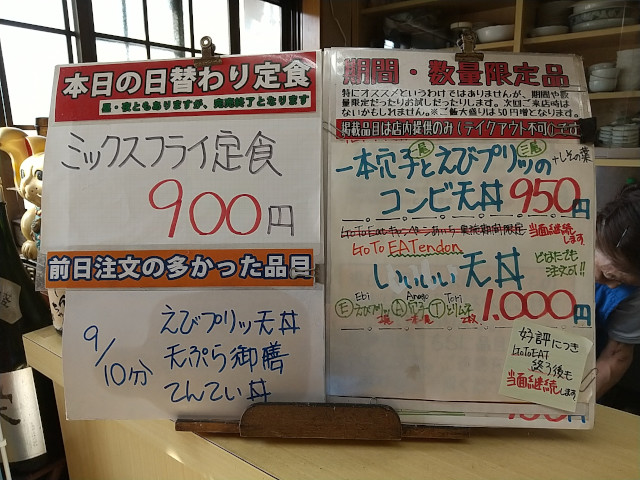 本日の日替わり定食
昼・夜ともありますが、完売終了となります
ミックスフライ定食
900円
前日注文の多かった品目
9/10分
えびプリッツ天丼
天ぷら御膳
てんてい丼
期間・数量限定品
特にオススメというわけではありませんが、期間や数
量限定だったりお試しだったりします。次回ご来店時は
ないかもしれません。※ご飯大盛りは50円増となります。
掲載品目は店内提供のみ(テイクアウト不可)
一本穴子とえびプリッツの
一尾 三尾
+しその葉
コンビ天丼 950円
GoToEatキャンペーンあいち 実施期間限定 当面継続します
GoTo EATendon
どなたでも
注文可!!
いいいい天丼
1.000円
Ebi Anago Tori
E えびプリッツ A 穴子 T とりムネ
好評につき
GoToEAT
終了後も
当面継続します